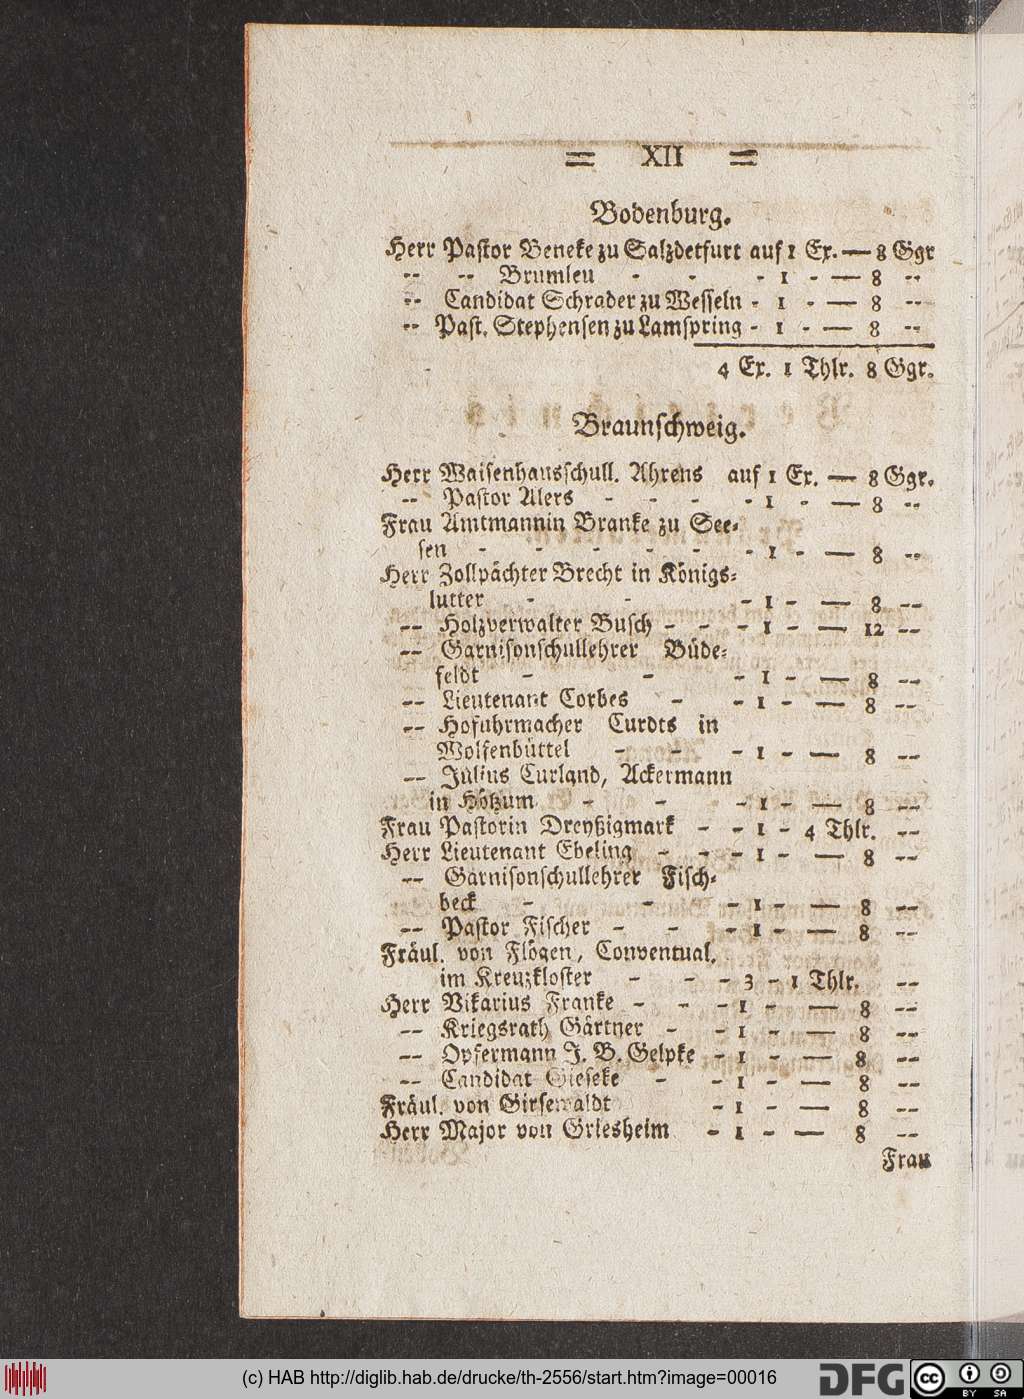 = XII =
Bodenburg.
Herr Pastor Beneke zu Salzdetfurt auf 1 Ex. — 8 Ggr
-- -- Brumleu - - - 1 - — 8 --
-- Candidat Schrader zu Wesseln - 1 - — 8 --
-- Past. Stephensen zu Lamspring - 1 - — 8 --
4 Ex. 1 Thlr. 8 Ggr.
Braunschweig.
Herr Waisenhausschull. Ahrens auf 1 Ex. — 8 Ggr.
-- Pastor Alers - - - - 1 - — 8 --
Frau Amtmannin Branke zu See-
sen - - - - - - 1 - — 8 --
Herr Zollpächter Brecht in Königs-
lutter - - - 1 - — 8 --
-- Holzverwalter Busch - - - 1 - — 12 --
-- Garnisonschullehrer Büde-
feldt - - - 1 - — 8 --
-- Lieutenant Corbes - - 1 - — 8 --
-- Hofuhrmacher Curdts in
Wolfenbüttel - - - 1 - — 8 --
-- Julius Curland, Ackermann
in Hötzum - - - 1 - — 8 --
Frau Pastorin Dreyßigmark - - 1 - 4 Thlr. --
Herr Lieutenant Ebeling - - - 1 - — 8 --
-- Garnisonschullehrer Fisch-
beck - - - 1 - — 8 --
-- Pastor Fischer - - - 1 - — 8 --
Fräul. von Flögen, Conventual.
im Kreuzkloster - - - 3 - 1 Thlr. --
Herr Vikarius Franke - - - 1 - — 8 --
-- Kriegsrath Gärtner - - 1 - — 8 --
-- Opfermann J. B. Gelpke - 1 - — 8 --
-- Candidat Gieseke - - 1 - — 8 --
Fräul. von Girsewaldt - 1 - — 8 --
Herr Major von Griesheim - 1 - — 8 --
Frau
(c) HAB http://diglib.hab.de/drucke/th-2556/start.htm?image=00016
DFG
cc
BY SA